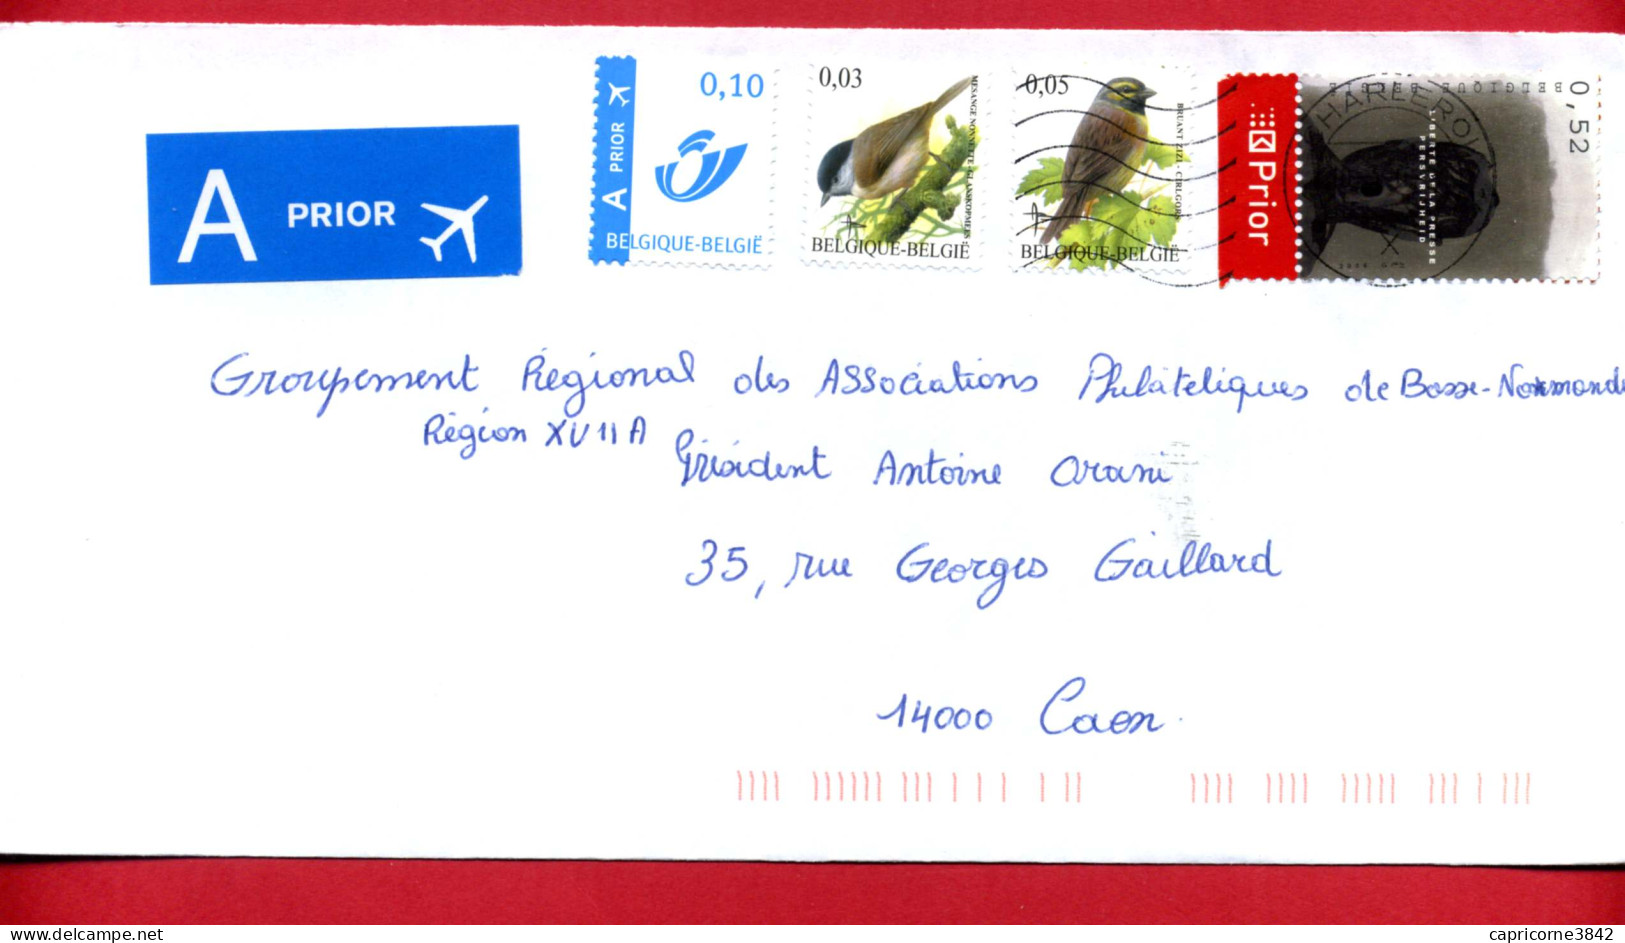 A PRIOR
A PRIOR
0,10
BELGIQUE-BELGIË
0,03
MESANGE NONNETTE - GLANSKOPMEES
BELGIQUE-BELGIË
0,05
BRUANT ZIZI - CIRLGORS
BELGIQUE-BELGIË
Prior
CHARLEROI X
LIBERTE DE LA PRESSE
PERSVRIJHEID
BELGIQUE BELGIË
0,52
Groupement Régional des Associations Philatéliques de Basse-Normandi
Région XVII A
Président Antoine Orani
35, rue Georges Gaillard
14000 Caen
www.delcampe.net
capricorne3842